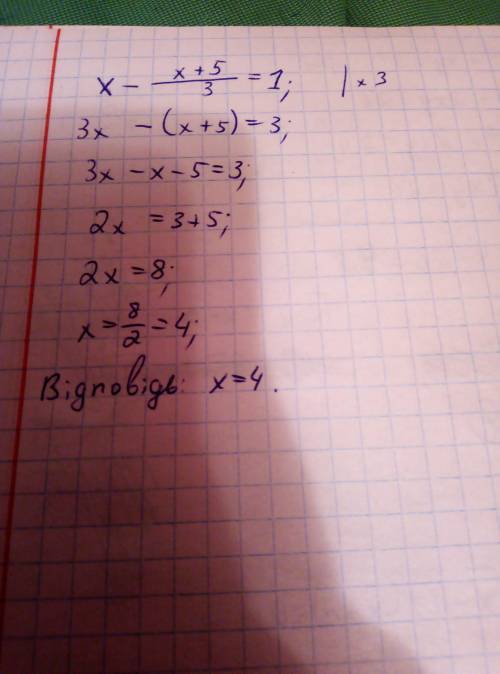 x - (x+5)/3 = 1; | × 3
3x - (x+5) = 3;
3x - x - 5 = 3;
2x = 3+5;
2x = 8;
x = 8/2 = 4;
Відповідь: x=4.